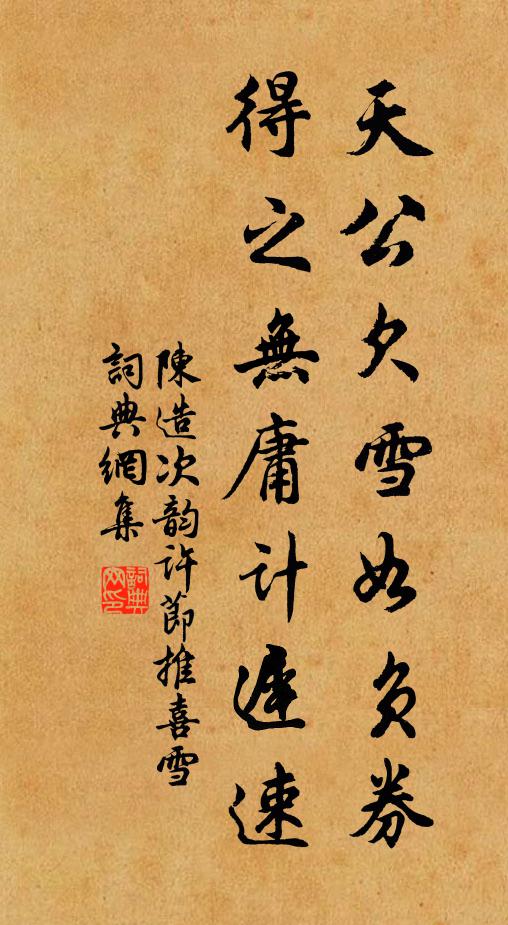 天公欠雪如負券
得之無庸計遲速
陳造次韵許節推喜雪
詞典網集
詞典網印